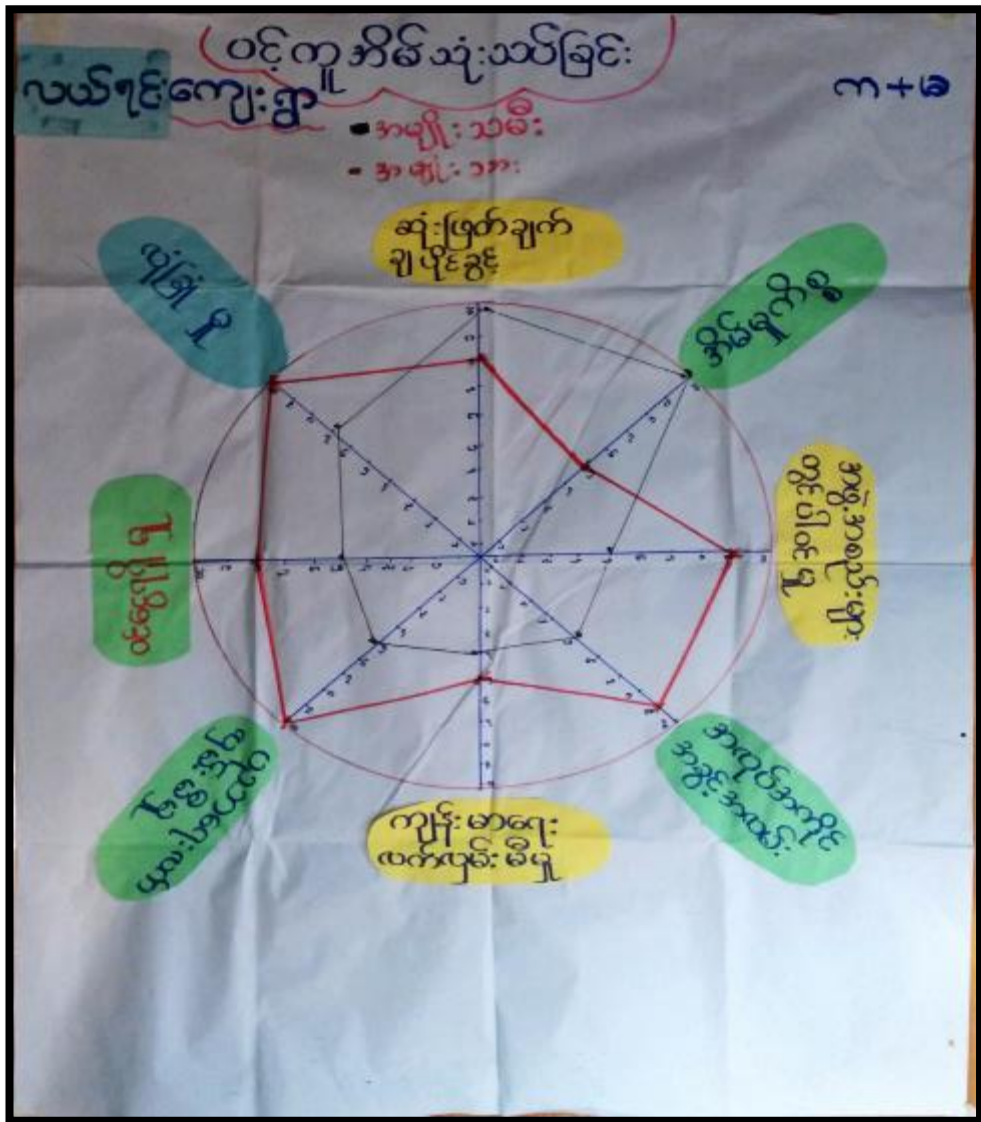 ပင့်ကူအိမ်သုံးသပ်ခြင်း
လယ်ရင်းကျေးရွာ
က+ခ
အမျိုးသမီး
- အမျိုးသား
ဆုံးဖြတ်ချက်
ချပိုင်ခွင့်
အိမ်မှုကိစ္စ
အဖွဲ့အစည်းများ
တွင် ပါဝင်မှု
အလုပ်အကိုင်
အခွင့်အလမ်း
ကျန်းမာရေး
လက်လှမ်းမီမှု
ပညာရေးလက်
လှမ်းမီမှု
ငွေ
လုံခြုံမှု